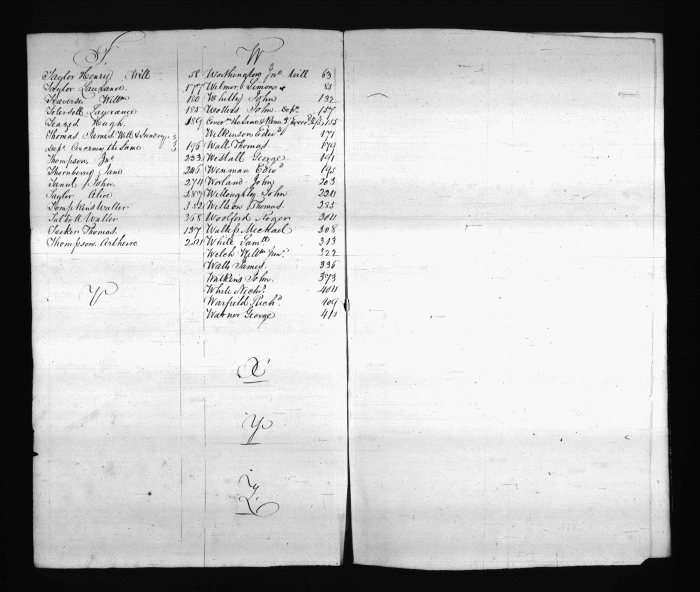 T.
Taylor Henry Will 58
Taylor Laurance 177
Taverner Willm 180
Tolersell Lawrance 185
Teazed Hugh 189
Thomas James Will & Sundry
Dept. Concerning the Same 196
Thompson Jno 233
Thornberry Jane 246
Tanut John 274
Taylor Alice 287
Tompkins Walter 352
Talbott Walter 368
Tucker Thomas 137
Thompson Arthure 201
V
W
Worthington Jno Will 63
Wilmer Simon 85
Whitley John 132
Worthes John Depo 157
Wilkenson Edwd 171
Wall Thomas 179
Westall George 191
Wenman Edwd 195
Worland John 203
Willoughby John 220
Willson Thomas 285
Woolford Roger 304
Watts Mickael 308
White Samll 313
Welch Willm Junr 322
Watts James 336
Watkins John 373
White Nichs 404
Warfield Richd 409
Warner George 413
X
Y
Z